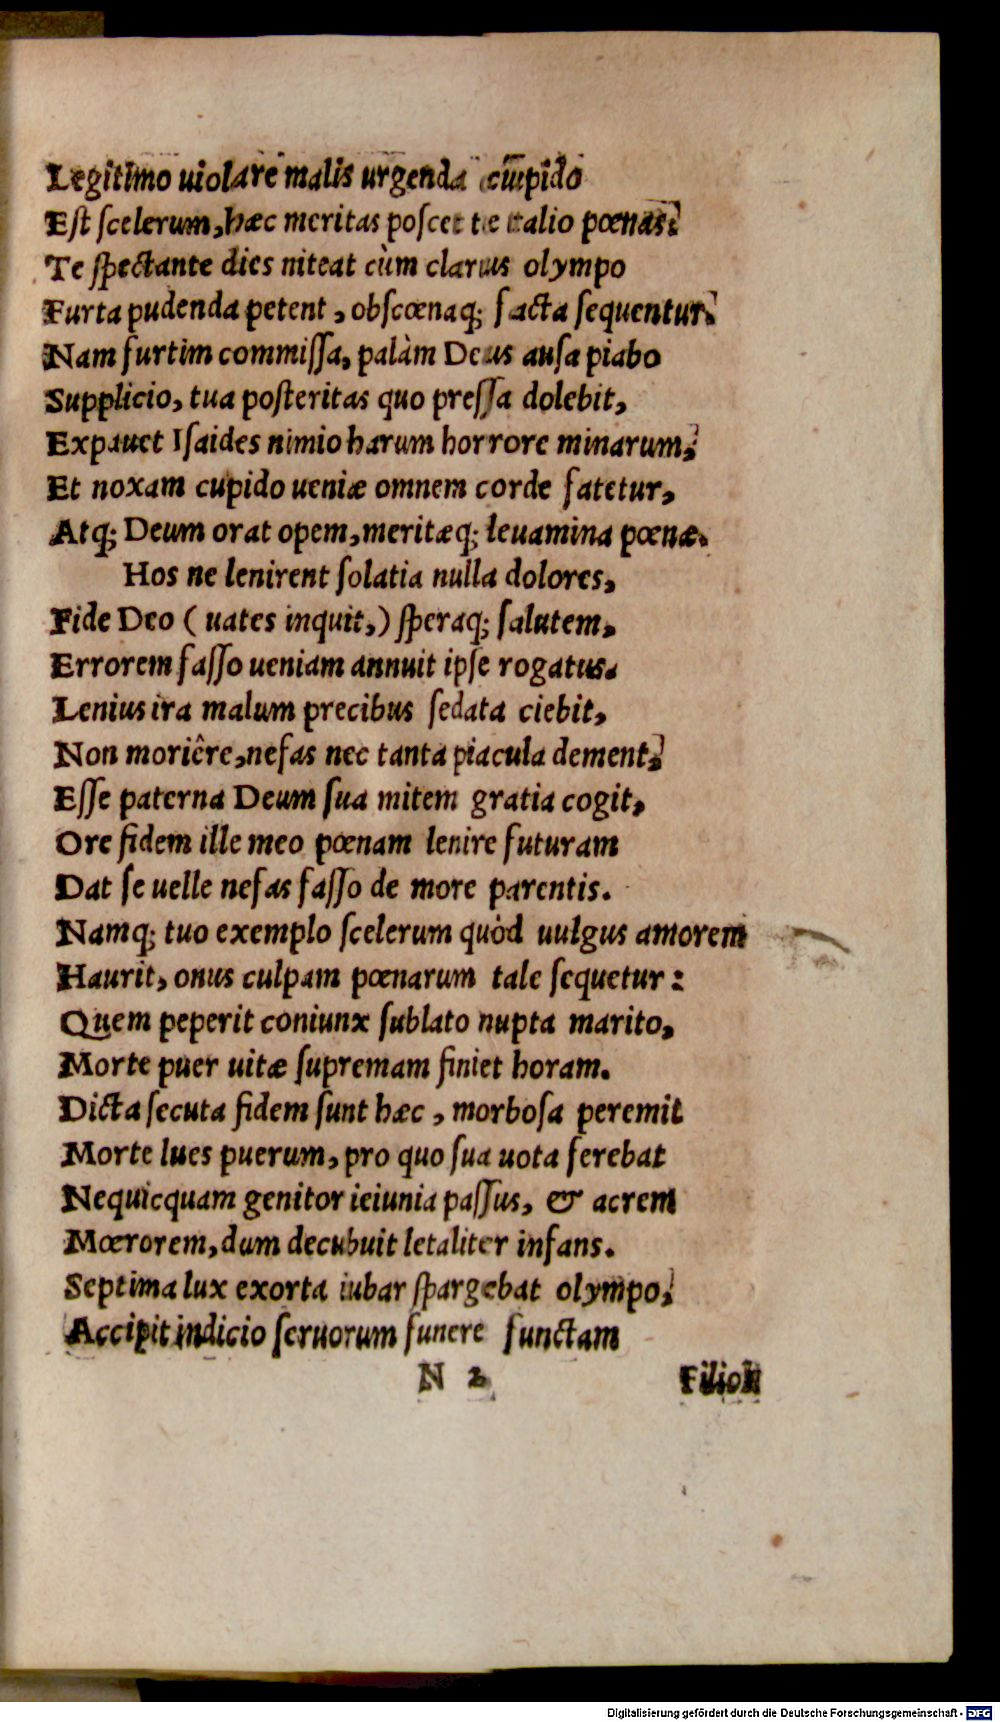 Legitimo uiolare malis urgenda cupido
Est scelerum, hæc meritas poscet te talio pœnas.
Te spectante dies niteat cùm clarus olympo
Furta pudenda petent, obscœnaq; facta sequentur.
Nam furtim commissa, palàm Deus ausa piabo
Supplicio, tua posteritas quo pressa dolebit,
Expauet Isaides nimio harum horrore minarum,
Et noxam cupido ueniæ omnem corde fatetur,
Atq; Deum orat opem, meritæq; leuamina pœnæ.
Hos ne lenirent solatia nulla dolores,
Fide Deo (uates inquit,) speraq; salutem,
Errorem fasso ueniam annuit ipse rogatus.
Lenius ira malum precibus sedata ciebit,
Non moriêre, nefas nec tanta piacula dement,
Esse paterna Deum sua mitem gratia cogit,
Ore fidem ille meo pœnam lenire futuram
Dat se uelle nefas fasso de more parentis.
Namq; tuo exemplo scelerum quòd uulgus amorem
Haurit, onus culpam pœnarum tale sequetur:
Quem peperit coniunx sublato nupta marito,
Morte puer uitæ supremam finiet horam.
Dicta secuta fidem sunt hæc, morbosa peremit
Morte lues puerum, pro quo sua uota ferebat
Nequicquam genitor ieiunia passus, & acrem
Mœrorem, dum decubuit letaliter infans.
Septima lux exorta iubar spargebat olympo,
Accipit indicio seruorum funere functam
N 2 Filioli
Digitalisierung gefördert durch die Deutsche Forschungsgemeinschaft - DFG